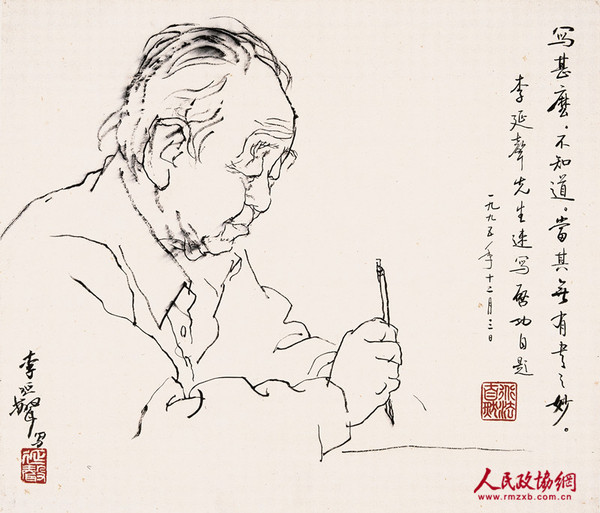 寫甚麼。不知道。當其無有書之妙。
李延聲先生速寫啓功自題
一九九五年十二月三日
李延聲寫
人民政協網
www.rmzxb.com.cn